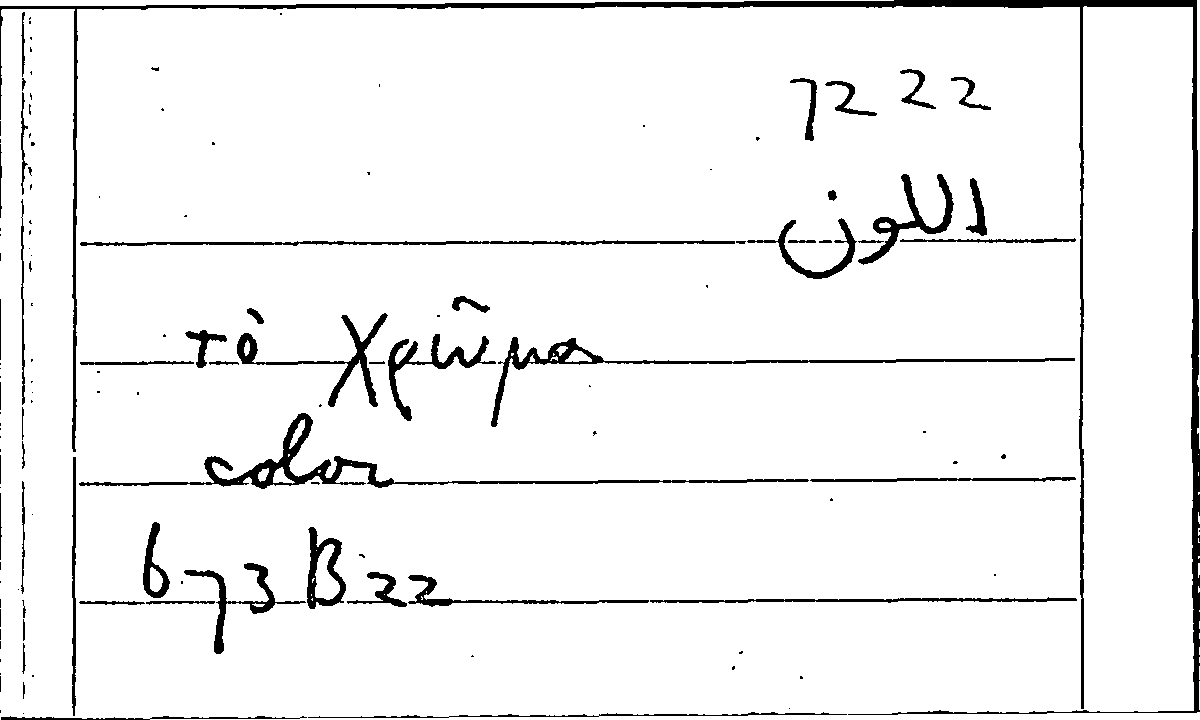 7222
اللون
τὸ χρῶμα
color
673B22